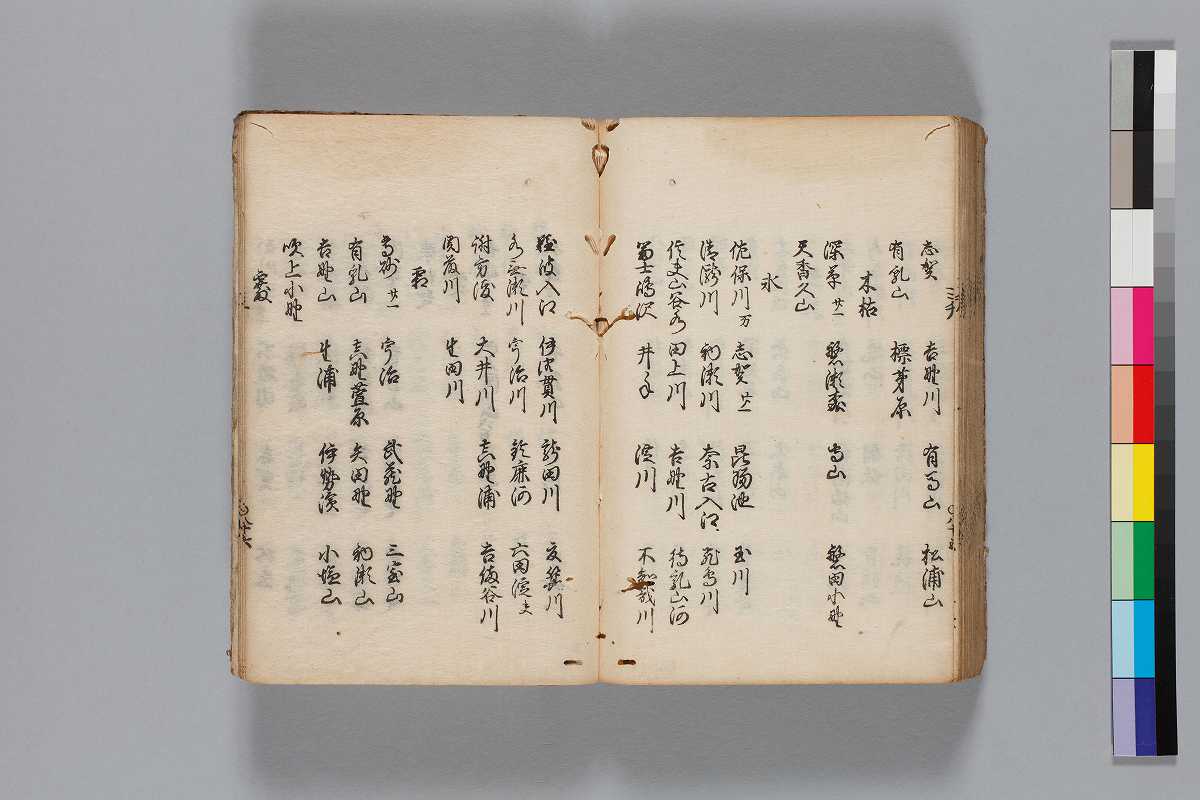 志賀 吉野川 有馬山 松浦山
有乳山 標茅原
木枯
深草 廿一 嵩山
天香久山
氷
佐保川 万 志賀 廿一 昆陽池 玉川
清瀧川 初瀬川 奈古入江 飛鳥川
信夫山谷水 田上川 吉野川 待乳山河
富士鳴沢 井手 淀川 不知哉川
難波入江 伊津貫川 龍田川
水無瀬川 宇治川 鈴鹿河 六田淀
諏方渡 大井川 志賀浦 吉備谷川
関藤川 生田川
霜
高砂 廿一 宇治 武蔵野 三室山
有乳山 真野萱原 矢田野 初瀬山
吉野山 生浦 伊勢濱 小塩山
吹上小野
霰